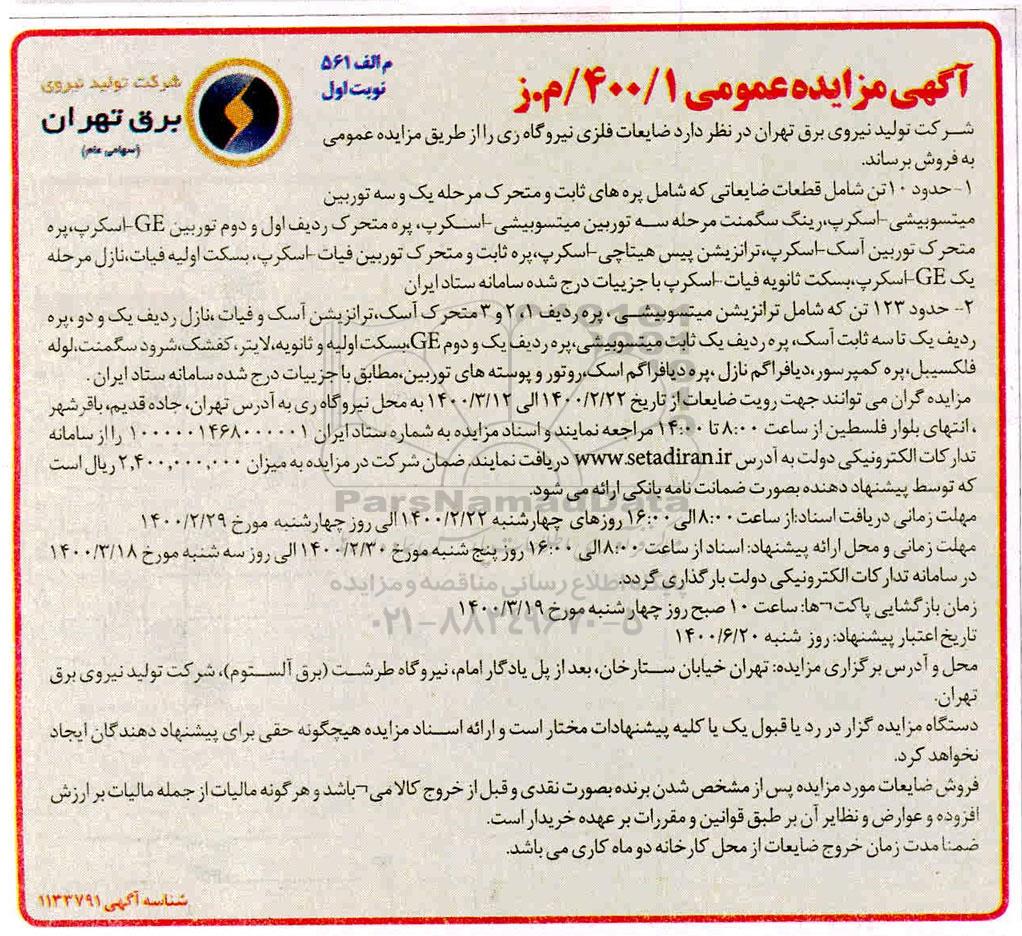 آگهی مزایده عمومی ۴۰۰/۱/م.ز
م الف ۵۶۱
نوبت اول
شرکت تولید نیروی
برق تهران
(سهامی عام)
شرکت تولید نیروی برق تهران در نظر دارد ضایعات فلزی نیروگاه ری را از طریق مزایده عمومی
به فروش برساند.
۱- حدود ۱۰ تن شامل قطعات ضایعاتی که شامل پره های ثابت و متحرک مرحله یک و سه توربین
میتسوبیشی-اسکرپ،رینگ سگمنت مرحله سه توربین میتسوبیشی-اسکرپ، پره متحرک ردیف اول و دوم توربین GE-اسکرپ،پره
متحرک توربین آسک-اسکرپ،ترانزیشن پیس هیتاچی-اسکرپ،پره ثابت و متحرک توربین فیات-اسکرپ، بسکت اولیه فیات،نازل مرحله
یک GE-اسکرپ،بسکت ثانویه فیات-اسکرپ با جزییات درج شده سامانه ستاد ایران
۲- حدود ۱۲۳ تن که شامل ترانزیشن میتسوبیشی، پره ردیف ۲،۱ و ۳ متحرک آسک،ترانزیشن آسک و فیات ،نازل ردیف یک و دو ،پره
ردیف یک تا سه ثابت آسک، پره ردیف یک ثابت میتسوبیشی،پره ردیف یک و دوم GE،بسکت اولیه و ثانویه،لایتر،کفشک،شرود سگمنت،لوله
فلکسیبل،پره کمپرسور،دیافراگم نازل ،پره دیافراگم اسک،روتور و پوسته های توربین،مطابق با جزییات درج شده سامانه ستاد ایران .
مزایده گران می توانند جهت رویت ضایعات از تاریخ ۱۴۰۰/۲/۲۲ الی ۱۴۰۰/۳/۱۲ به محل نیروگاه ری به آدرس تهران، جاده قدیم، باقرشهر
، انتهای بلوار فلسطین از ساعت ۸:۰۰ تا ۱۴:۰۰ مراجعه نمایند و اسناد مزایده به شماره ستاد ایران ۱۰۰۰۰۰۱۴۶۸۰۰۰۰۰۱ را از سامانه
تدارکات الکترونیکی دولت به آدرس www.setadiran.ir دریافت نمایند. ضمان شرکت در مزایده به میزان ۲,۴۰۰,۰۰۰,۰۰۰ ریال است
که توسط پیشنهاد دهنده بصورت ضمانت نامه بانکی ارائه می شود.
ParsNamadData
مهلت زمانی دریافت اسناد:از ساعت ۸:۰۰ الی ۱۶:۰۰ روزهای چهارشنبه ۱۴۰۰/۲/۲۲ الی روز چهارشنبه مورخ ۱۴۰۰/۲/۲۹
مهلت زمانی و محل ارائه پیشنهاد: اسناد از ساعت ۸:۰۰ الی ۱۶:۰۰ روز پنج شنبه مورخ ۱۴۰۰/۲/۳۰ الی روز سه شنبه مورخ ۱۴۰۰/۳/۱۸
در سامانه تدارکات الکترونیکی دولت بارگذاری گردد.
پایگاه اطلاع رسانی مناقصه و مزایده
زمان بازگشایی پاکت¬ها: ساعت ۱۰ صبح روز چهارشنبه مورخ ۱۴۰۰/۳/۱۹
۰۲۱-۸۸۳۴۹۶۷۰-۵
تاریخ اعتبار پیشنهاد: روز شنبه ۱۴۰۰/۶/۲۰
محل و آدرس برگزاری مزایده: تهران خیابان ستارخان، بعد از پل یادگار امام، نیروگاه طرشت (برق آلستوم)، شرکت تولید نیروی برق
تهران.
دستگاه مزایده گزار در رد یا قبول یک یا کلیه پیشنهادات مختار است و ارائه اسناد مزایده هیچگونه حقی برای پیشنهاد دهندگان ایجاد
نخواهد کرد.
فروش ضایعات مورد مزایده پس از مشخص شدن برنده بصورت نقدی و قبل از خروج کالا می¬باشد و هرگونه مالیات از جمله مالیات بر ارزش
افزوده و عوارض و نظایر آن بر طبق قوانین و مقررات بر عهده خریدار است.
ضمنا مدت زمان خروج ضایعات از محل کارخانه دو ماه کاری می باشد.
شناسه آگهی ۱۱۳۳۷۹۱